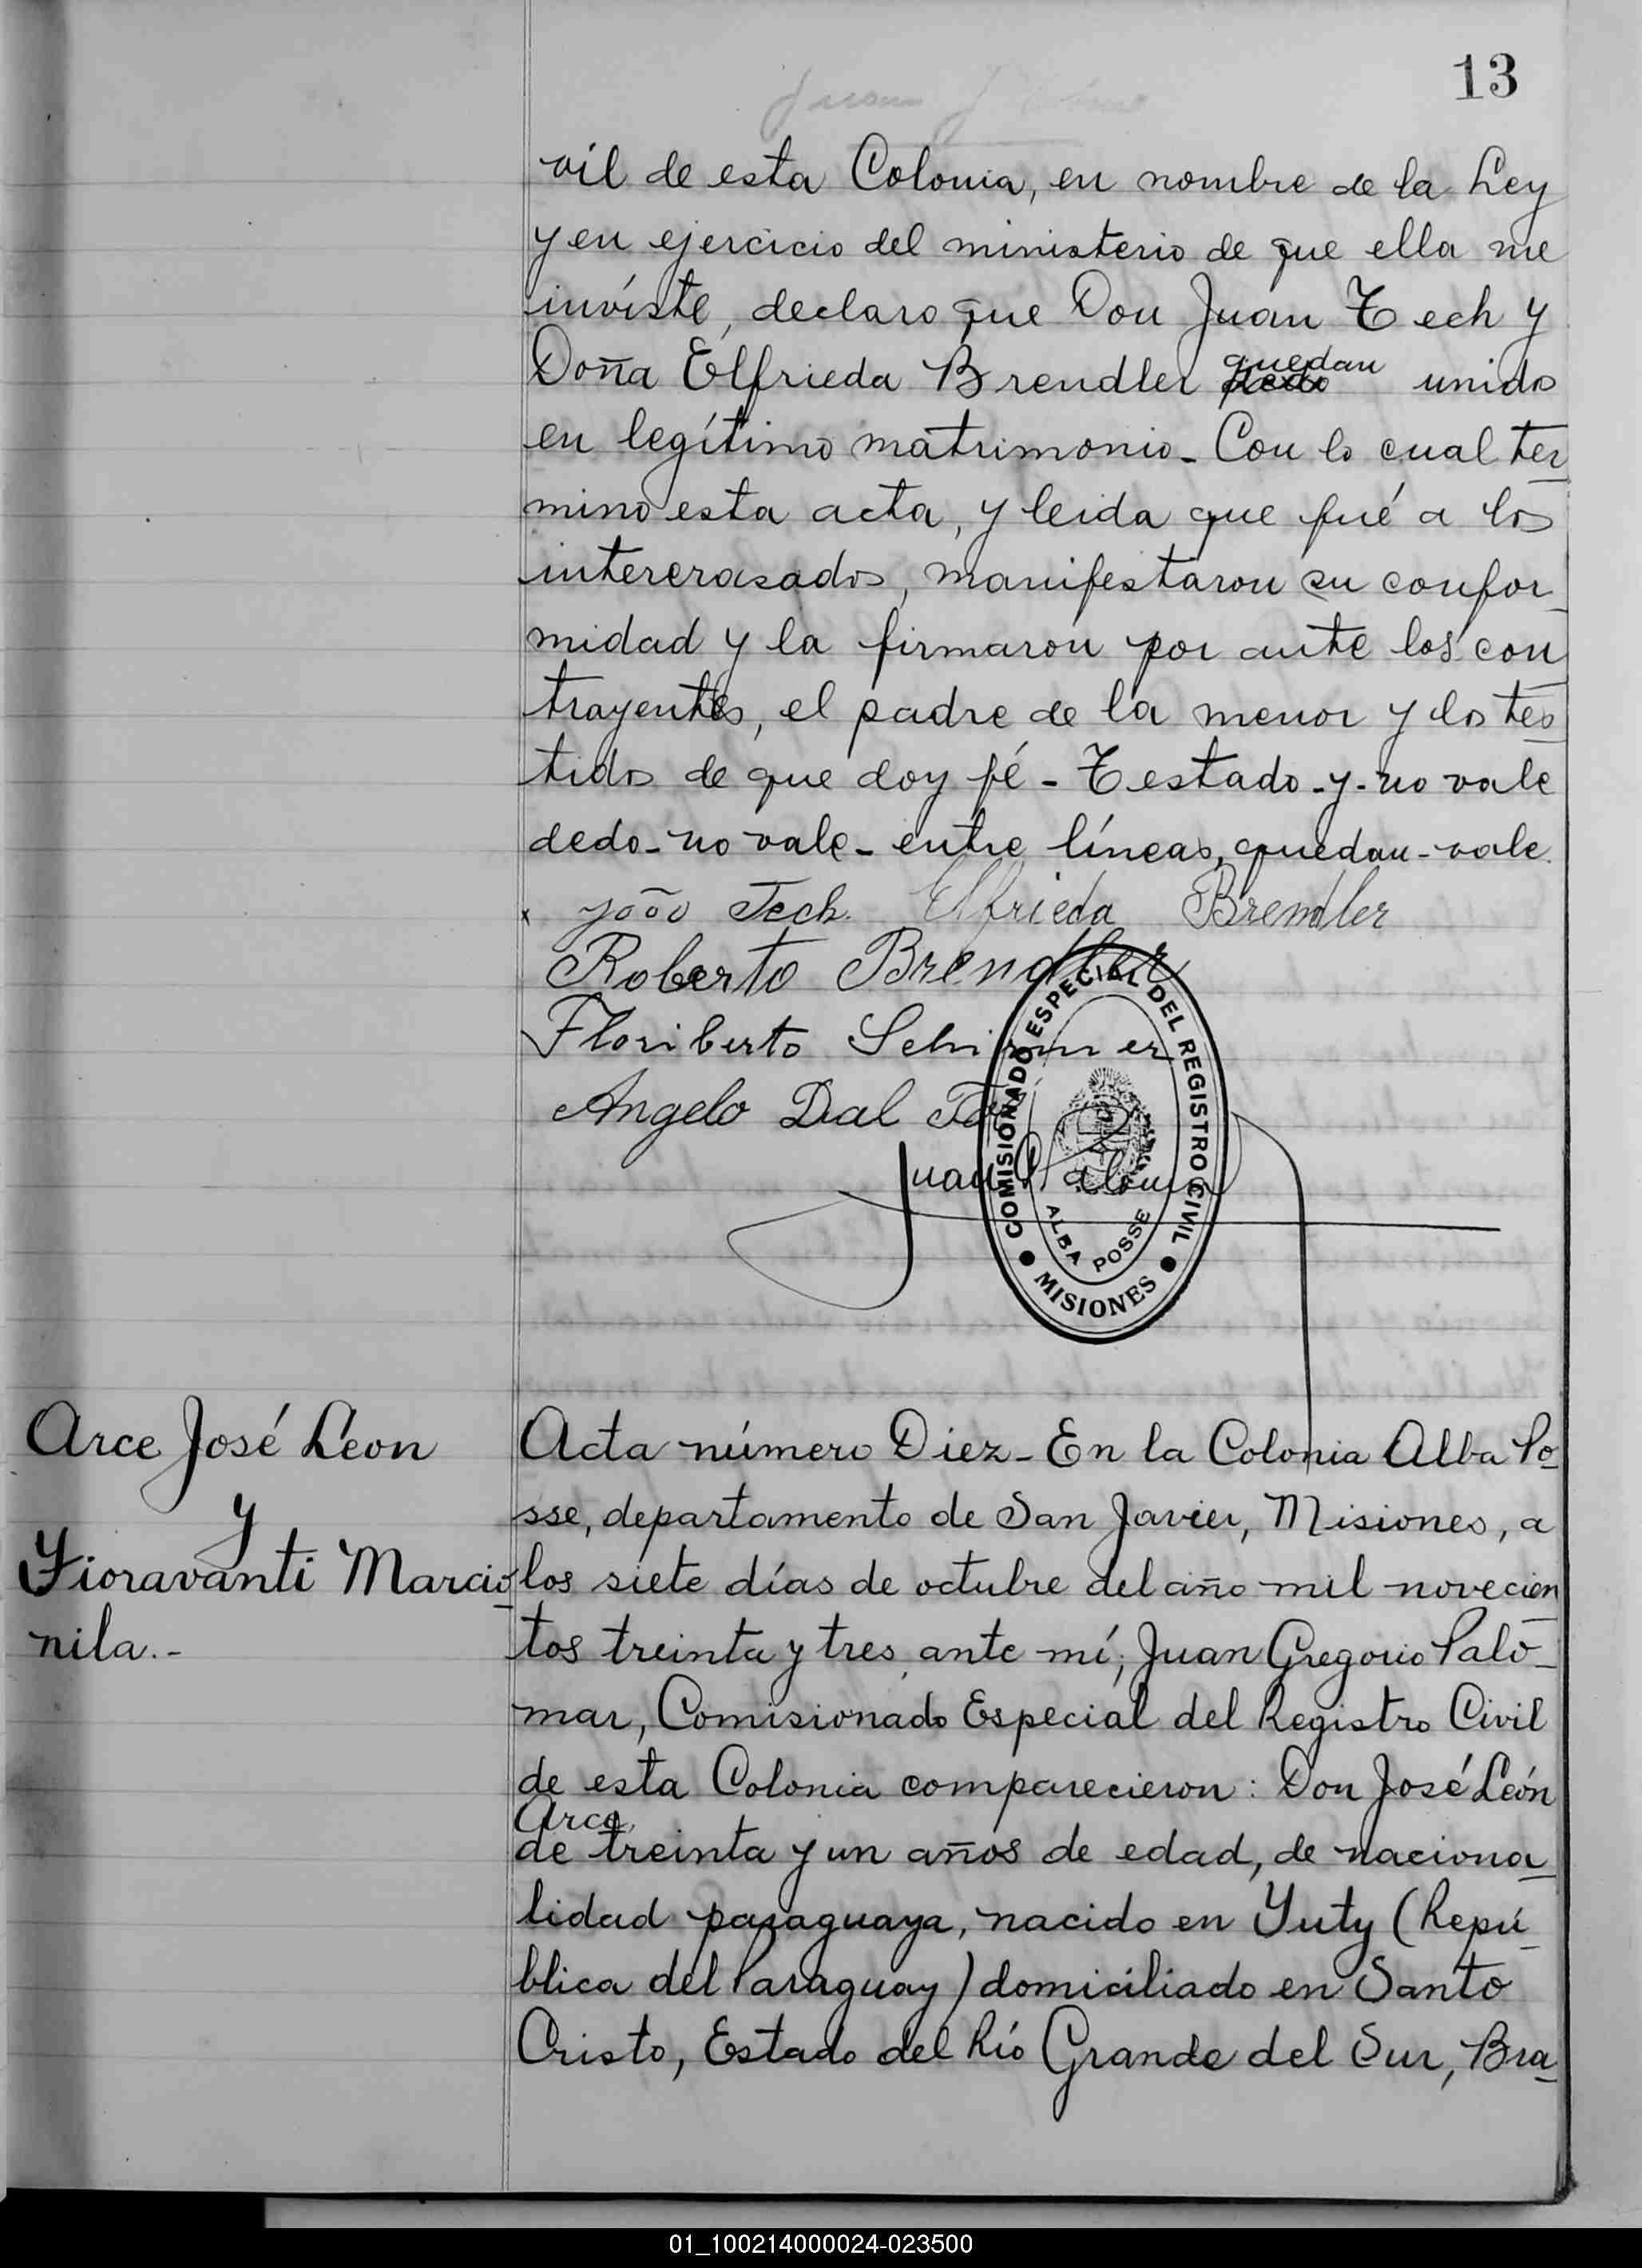 13
vil de esta Colonia, en nombre de la Ley
y en ejercicio del ministerio de que ella me
inviste, declaro que Don Juan Tech y
Doña Elfrieda Brendler quedan unidos
en legítimo matrimonio_ Con lo cual ter_
mino esta acta, y leida que fué a los
intererasados, manifestaron su confor_
midad y la firmaron por ante los con
trayentes, el padre de la menor y los tes_
tidos de que doy fé - Testado - y - no vale
dedo - no vale - entre líneas, quedan - vale.
x João Tech. Elfrieda Brendler
Roberto Brendler
Floriberto Schirmer
Angelo Dal
Juan G Palomar
COMISIONADO ESPECIAL DEL REGISTRO CIVIL
ALBA POSSE
• MISIONES •
Arce José Léon
y
Fioravanti Marcio_
nila.-
Acta número Diez - En la Colonia Alba Po_
sse, departamento de San Javier, Misiones, a
los siete días de octubre del año mil novecien_
tos treinta y tres, ante mí; Juan Gregorio Palo_
mar, Comisionado Especial del Registro Civil
de esta Colonia comparecieron: Don José León
Arce,
de treinta y un años de edad, de naciona_
lidad paraguaya, nacido en Yuty (Repú_
blica del Paraguay) domiciliado en Santo
Cristo, Estado del Río Grande del Sur, Bra_
01_100214000024-023500